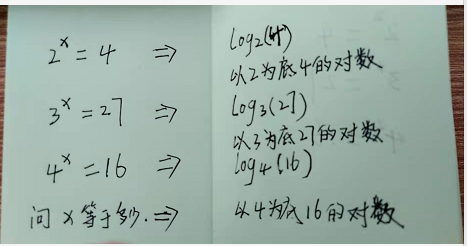 2^x = 4 ⇒ log₂(4)
以2为底4的对数
3^x = 27 ⇒ log₃(27)
以3为底27的对数
4^x = 16 ⇒ log₄(16)
问 x 等于多少. ⇒ 以4为底16的对数